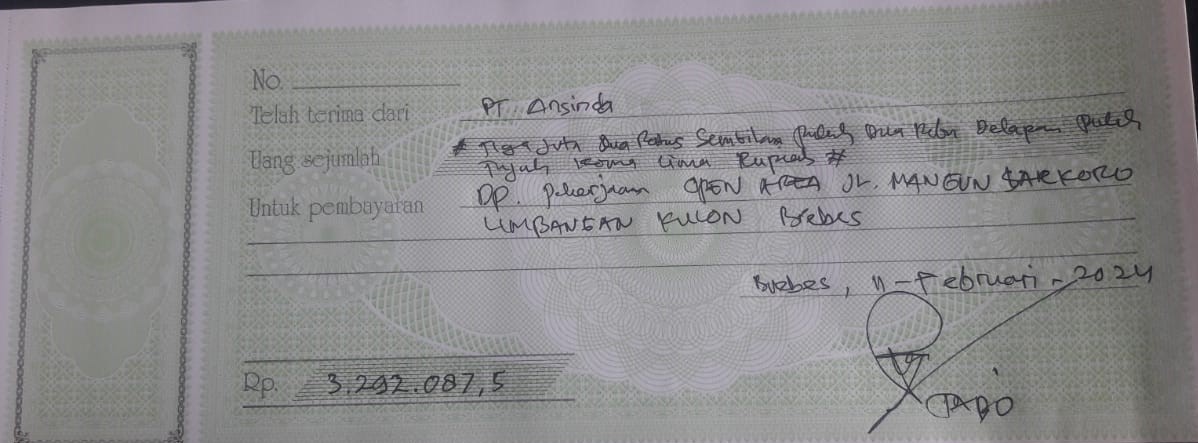 No.
Telah terima dari PT. Ansinda
Uang sejumlah # Tiga Juta Dua Ratus Sembilan Puluh Dua Ribu Delapan Puluh
Tujuh koma Lima Rupiah #
Untuk pembayaran DP. Pekerjaan OPEN AREA JL. MANGUN SARKORO
LIMBANGAN KULON Brebes
Brebes, 11-Februari-2024
Rp. 3.292.087,5